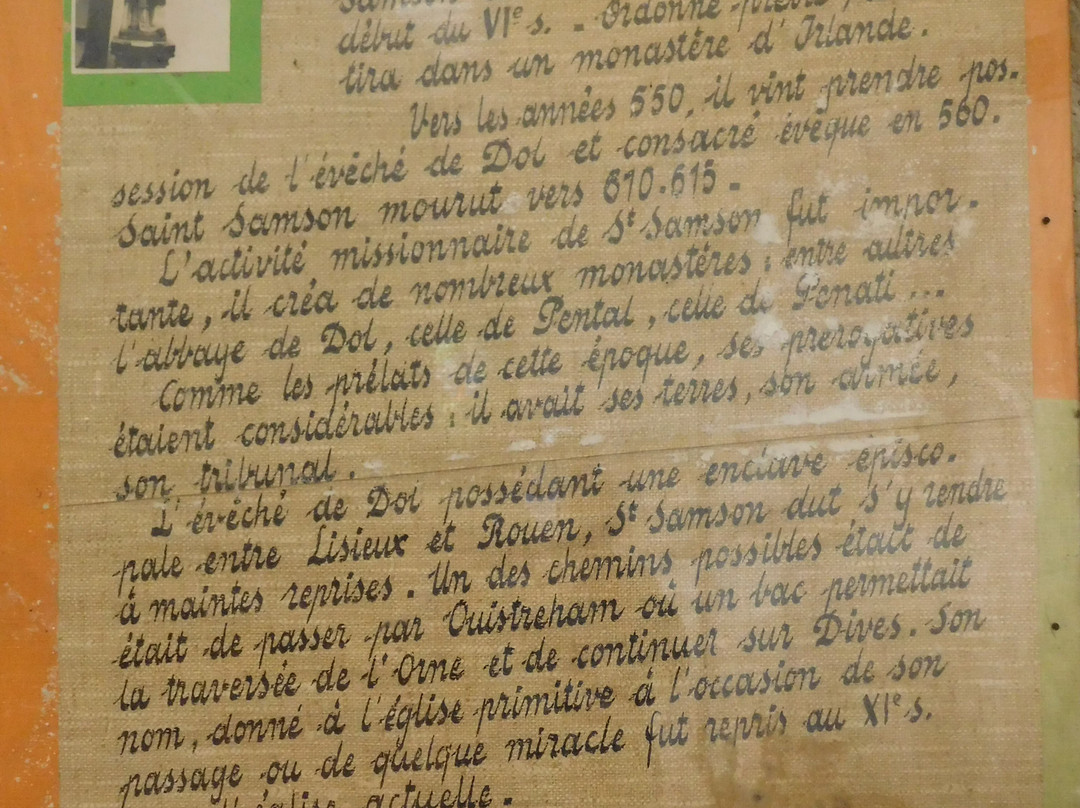 Samson
début du VIe s. - Ordonné prêtre,
tira dans un monastère d'Irlande.
Vers les années 550, il vint prendre pos-
session de l'évêché de Dol et consacré évêque en 560.
Saint Samson mourut vers 610-615.
L'activité missionnaire de St Samson fut impor-
tante, il créa de nombreux monastères : entre autres
l'abbaye de Dol, celle de Pental, celle de Penati ...
Comme les prélats de cette époque, ses prerogatives
étaient considérables : il avait ses terres, son armée,
son tribunal.
L'évêché de Dol possédant une enclave épisco-
pale entre Lisieux et Rouen, St Samson dut s'y rendre
à maintes reprises. Un des chemins possibles était de
était de passer par Ouistreham où un bac permettait
la traversée de l'Orne et de continuer sur Dives. Son
nom, donné à l'église primitive à l'occasion de son
passage ou de quelque miracle fut repris au XIe s.
l'église actuelle.